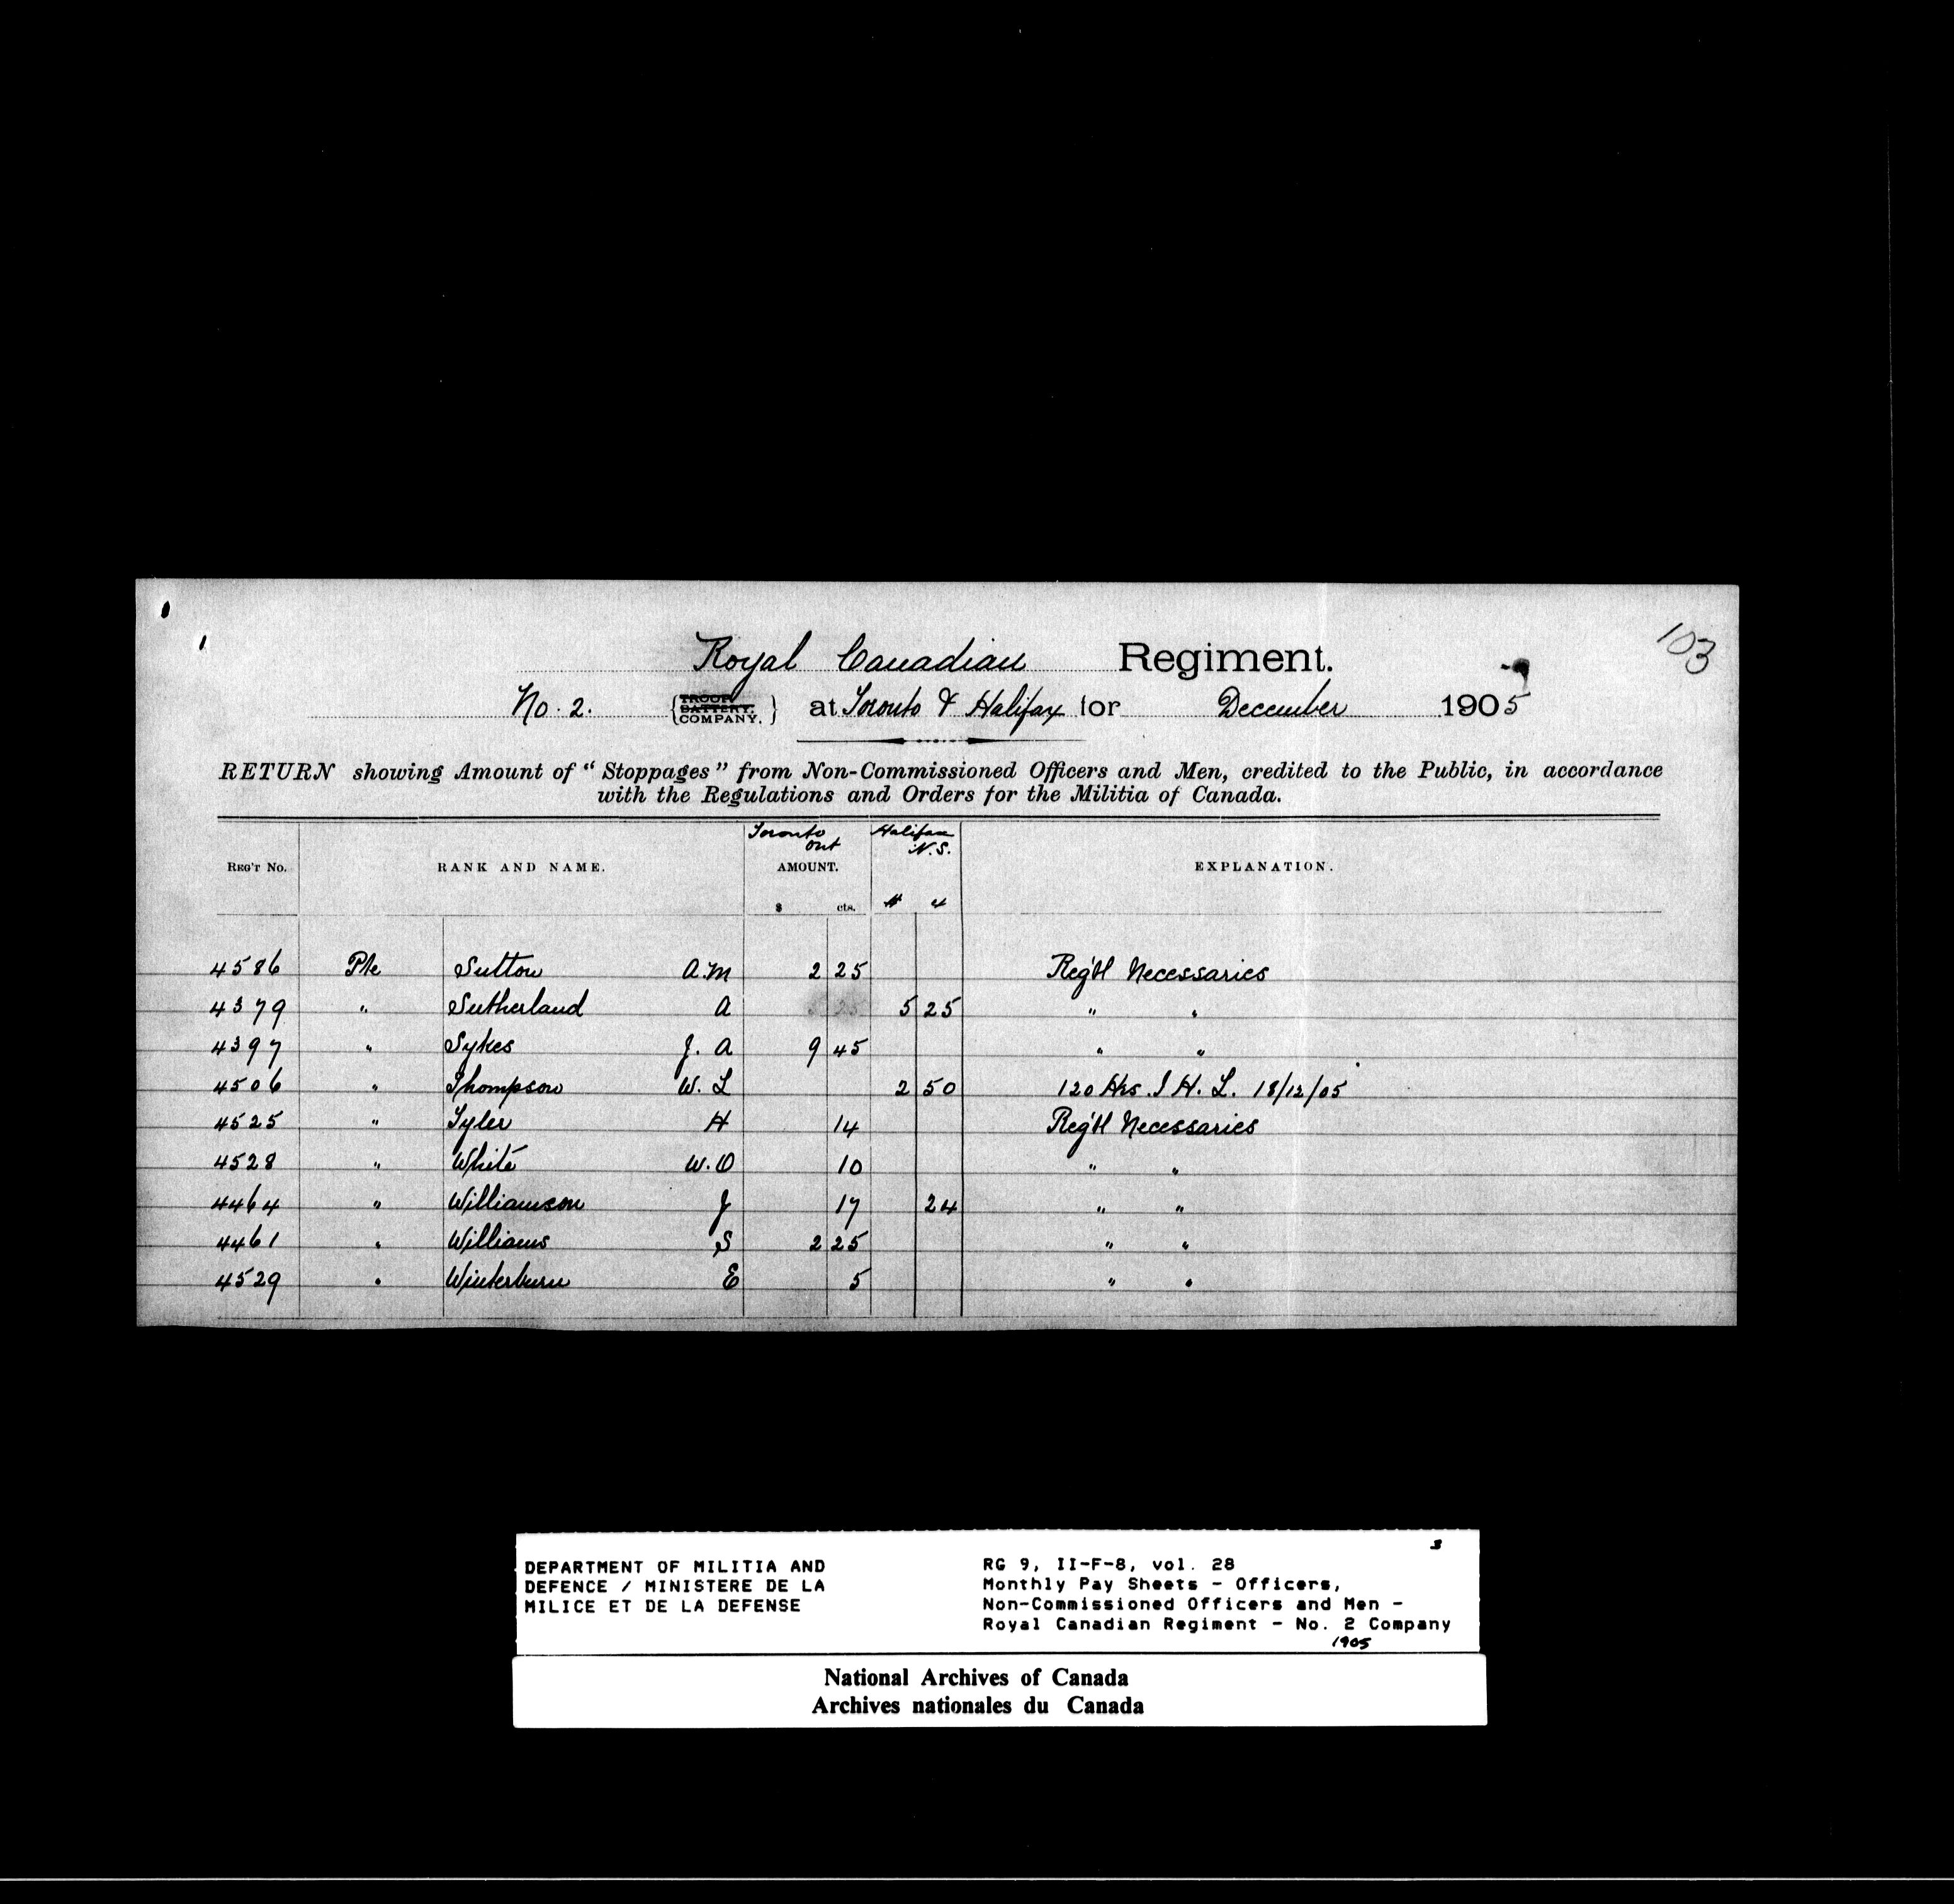 103
Royal Canadian Regiment.
No. 2. {TROOP, BATTERY, COMPANY.} at Toronto & Halifax for December 1905
RETURN showing Amount of "Stoppages" from Non-Commissioned Officers and Men, credited to the Public, in accordance
with the Regulations and Orders for the Militia of Canada.
REG'T No. RANK AND NAME. Toronto Ont AMOUNT. $ cts. Halifax N.S. $ ¢ EXPLANATION.
4586 Pte Sutton A.M 2 25 Reg'tl Necessaries
4379 " Sutherland A 5 25 " "
4397 " Sykes J. A 9 45 " "
4506 " Thompson W. L 2 50 120 Hrs. I. H. L. 18/12/05
4525 " Tyler H 14 Reg'tl Necessaries
4528 " White W. O 10 " "
4464 " Williamson J 17 24 " "
4461 " Williams S 2 25 " "
4529 " Winterburn E 5 " "
3
DEPARTMENT OF MILITIA AND
DEFENCE / MINISTERE DE LA
MILICE ET DE LA DEFENSE
RG 9, II-F-8, vol. 28
Monthly Pay Sheets - Officers,
Non-Commissioned Officers and Men -
Royal Canadian Regiment - No. 2 Company
1905
National Archives of Canada
Archives nationales du Canada